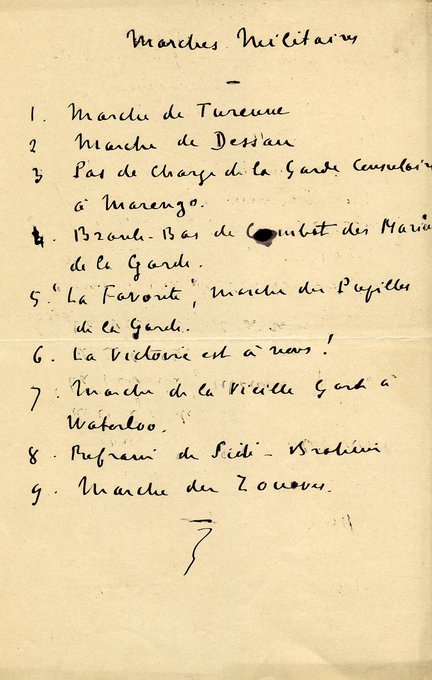 Marches Militaires
1. Marche de Turenne
2 Marche de Dessau
3 Pas de Charge de la Garde Consulaire
à Marengo.
4. Branle-Bas de Combat des Marins
de la Garde.
5. "La Favorite", Marche des Pupilles
de la Garde.
6. La Victoire est à nous !
7. Marche de la Vieille Garde à
Waterloo.
8. Refrain de Sidi-Brahim
9. Marche des Zouaves.